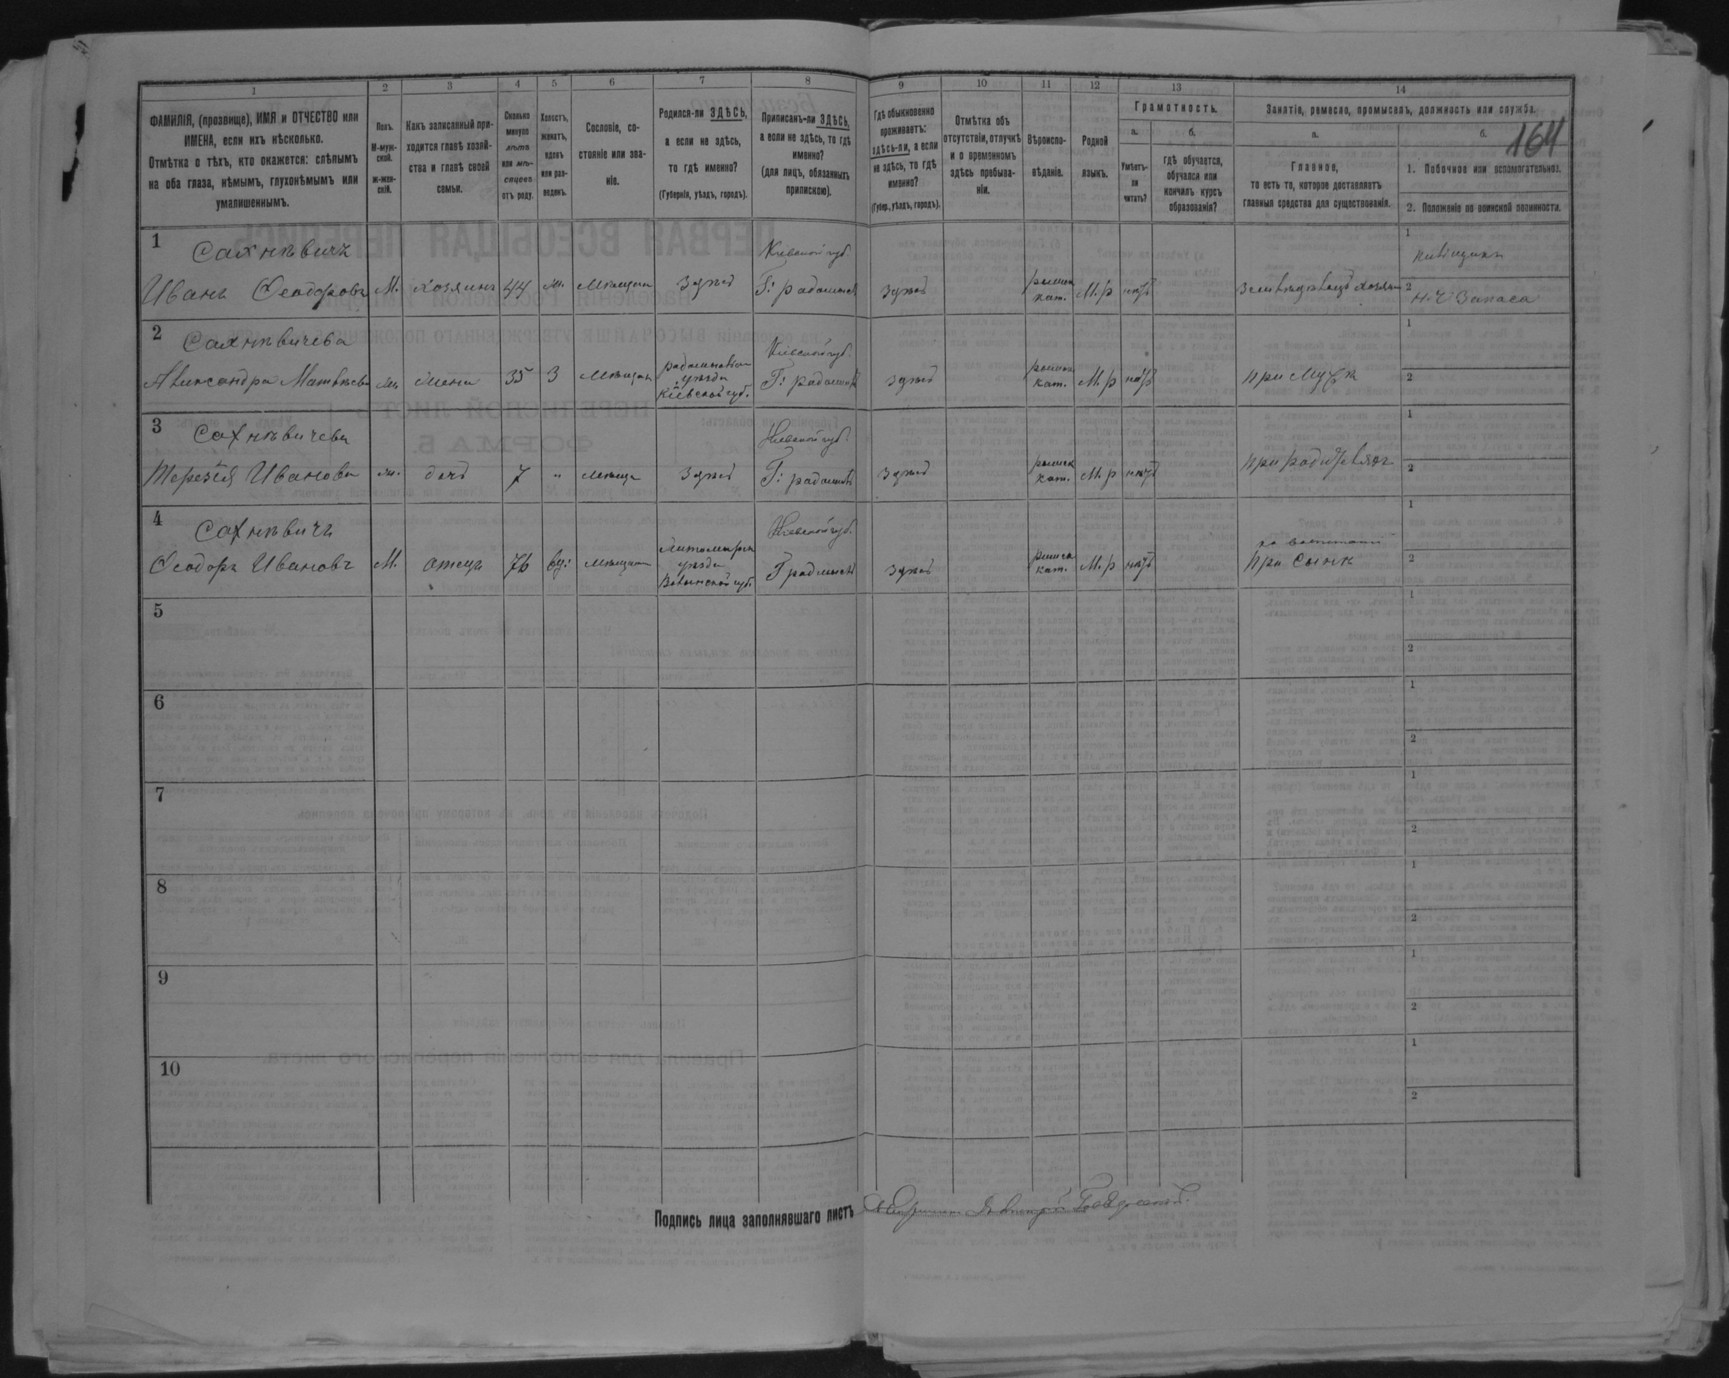 1
2
3
4
5
6
7
8
9
10
11
12
13
14
ФАМИЛІЯ, (прозвище), ИМЯ и ОТЧЕСТВО или
ИМЕНА, если ихъ нѣсколько.
Отмѣтка о тѣхъ, кто окажется: слѣпымъ
на оба глаза, нѣмымъ, глухонѣмымъ или
умалишеннымъ.
Полъ.
М-муж-
ской.
Ж-жен-
скій.
Какъ записанный при-
ходится главѣ хозяй-
ства и главѣ своей
семьи.
Сколько
минуло
лѣтъ
или мѣ-
сяцевъ
отъ роду.
Холостъ,
женатъ,
вдовъ
или раз-
веденъ.
Сословіе, со-
стояніе или зва-
ніе.
Родился-ли ЗДѢСЬ,
а если не здѣсь,
то гдѣ именно?
(Губернія, уѣздъ, городъ).
Приписанъ-ли ЗДѢСЬ,
а если не здѣсь, то гдѣ
именно?
(для лицъ, обязанныхъ
припискою).
Гдѣ обыкновенно
проживаетъ:
здѣсь-ли, а если
не здѣсь, то гдѣ
именно?
(Губер., уѣздъ, городъ).
Отмѣтка объ
отсутствіи, отлучкѣ
и о временномъ
здѣсь пребыва-
ніи.
Вѣроиспо-
вѣданіе.
Родной
языкъ.
Грамотность.
а.
Умѣетъ-
ли
читать?
б.
гдѣ обучается,
обучался или
кончилъ курсъ
образованія?
Занятіе, ремесло, промыселъ, должность или служба.
а.
Главное,
то есть то, которое доставляетъ
главныя средства для существованія.
б.
164
1. Побочное или вспомогательное.
2. Положеніе по воинской повинности.
1
Сахневичъ
Иванъ Ѳеодоровъ
М.
хозяинъ
44
ж.
мѣщан
Здѣсь
Кіевской губ.
Г. радомысль
здѣсь
римск
кат.
М.р
нѣтъ
1
2
Запаса
2
Сахневичева
Александра Матвѣева
ж.
жена
35
З
мѣщан
радомысл
уѣзда
Кіевской губ.
Кіевской губ.
Г. радомысль
здѣсь
римск
кат.
М.р
нѣтъ
при мужѣ
1
2
3
Сахневичева
Терезія Иванова
ж.
дочь
7
"
мѣщан
Здѣсь
Кіевской губ.
Г. радомысль
здѣсь
римск
кат.
М.р
нѣтъ
при родителяхъ
1
2
4
Сахневичъ
Ѳеодоръ Ивановъ
М.
отецъ
76
вд.
мѣщан
Житомирск
уѣзда
Волынской губ.
Кіевской губ.
Г радомысль
здѣсь
римск
кат.
М.р
нѣтъ
при сынѣ
1
2
5
1
2
6
1
2
7
1
2
8
1
2
9
1
2
10
1
2
Подпись лица заполнявшаго листъ